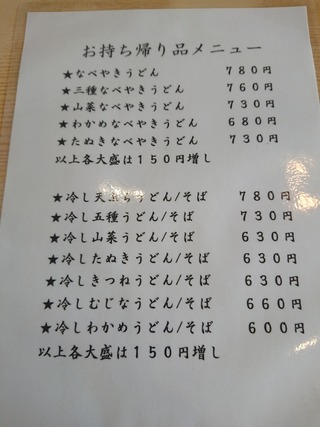 お持ち帰り品メニュー
★なべやきうどん 780円
★三種なべやきうどん 760円
★山菜なべやきうどん 730円
★わかめなべやきうどん 680円
★たぬきなべやきうどん 730円
以上各大盛は150円増し
★冷し天ぷらうどん/そば 780円
★冷し五種うどん/そば 730円
★冷し山菜うどん/そば 630円
★冷したぬきうどん/そば 630円
★冷しきつねうどん/そば 630円
★冷しむじなうどん/そば 660円
★冷しわかめうどん/そば 600円
以上各大盛は150円増し